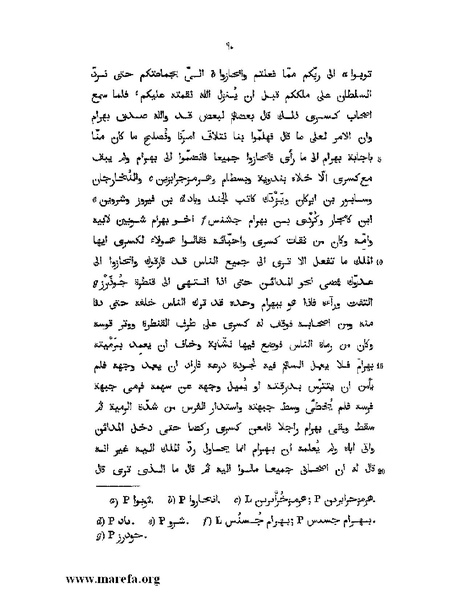 ٩٠
توبوا a الى ربّكم ممّا فعلتم وانحازوا b الىّ بجماعتكم حتى نردّ
السلطان على ملككم قبل ان يُنزل الله نقمته عليكم، فلما سمع
اصحاب كسرى ذلك قال بعضهم لبعض قد والله صدق بهرام
وان الامر لعلى ما قال فهلمّوا بنا نتلافَ امرنا ونُصلح ما كان منّا
5 باجابة بهرام الى ما رأى فانحازوا جميعا فانضمّوا الى بهرام ولم يبقَ
مع كسرى الّا خلاه بندوية وبسطام وهرمزجرابزين c والنُخارجان
وسابور بن ابركان ويَزْدَك كاتب الجند وباد d بن فيروز وشروين e
ابن كامجار وكُرْدى بن بهرام جشنس f اخو بهرام شوبين لابيه
وامّه وكان من ثقات كسرى واحبّائه فقالوا هولاء لكسرى ايها
10 الملك ما تفعل الا ترى الى جميع الناس قد فارقوك وانحازوا الى
عدوّك فمضى نحو المدائن حتى اذا انتهى الى قنطرة جُوذَرْز g
التفت وراءه فاذا هو ببهرام وحده قد ترك الناس خلفه حتى دنا
منه ومن اصحابه فوقف له كسرى على طرف القنطرة ووتر قوسه
وكان من رماة الناس فوضع فيها نشّابة وخاف ان يعمد برَمْيته
15 بهرام فلا يعمل السهم فيه لجودة درعه فاراد ان يعمد وجهه فلم
يأمن ان يتترّس بدرقته او يُميل وجهه عن سهمه فرمى جبهة
فرسه فلم يُخطئ وسط جبهته واستدار الفرس من شدّة الرمية ثم
سقط وبقى بهرام راجلا فامعن كسرى ركضا حتى دخل المدائن
واتى اباه ولم يُعلمه ان بهرام انما يحاول ردّ الملك اليه غير انه
20 قال له ان اصحابى جميعا مالوا اليه ثم قال ما الذى ترى قال
a) P ثوبوا. b) P انحاروا. c) L هرمزخُرّادبرين; P هرمزجرابردن.
d) P باد. e) P شرو. f) L بهرام جُسنُس; P بهرام جسدس.
g) P حودرز.
www.marefa.org